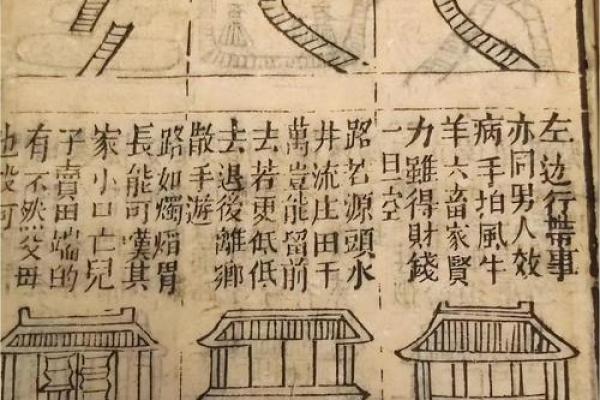 左边行帶事
亦同男人效
病手拍風牛
羊六畜家賢
力雖得財錢
一旦空
路若源頭水
井流庄田干
萬豈能留前
去若更低低
去退後離鄉
散手遊
路如燭熖胃
長能可嘆其
家小口亡兒
子賣田端的
有不然父母
也投河